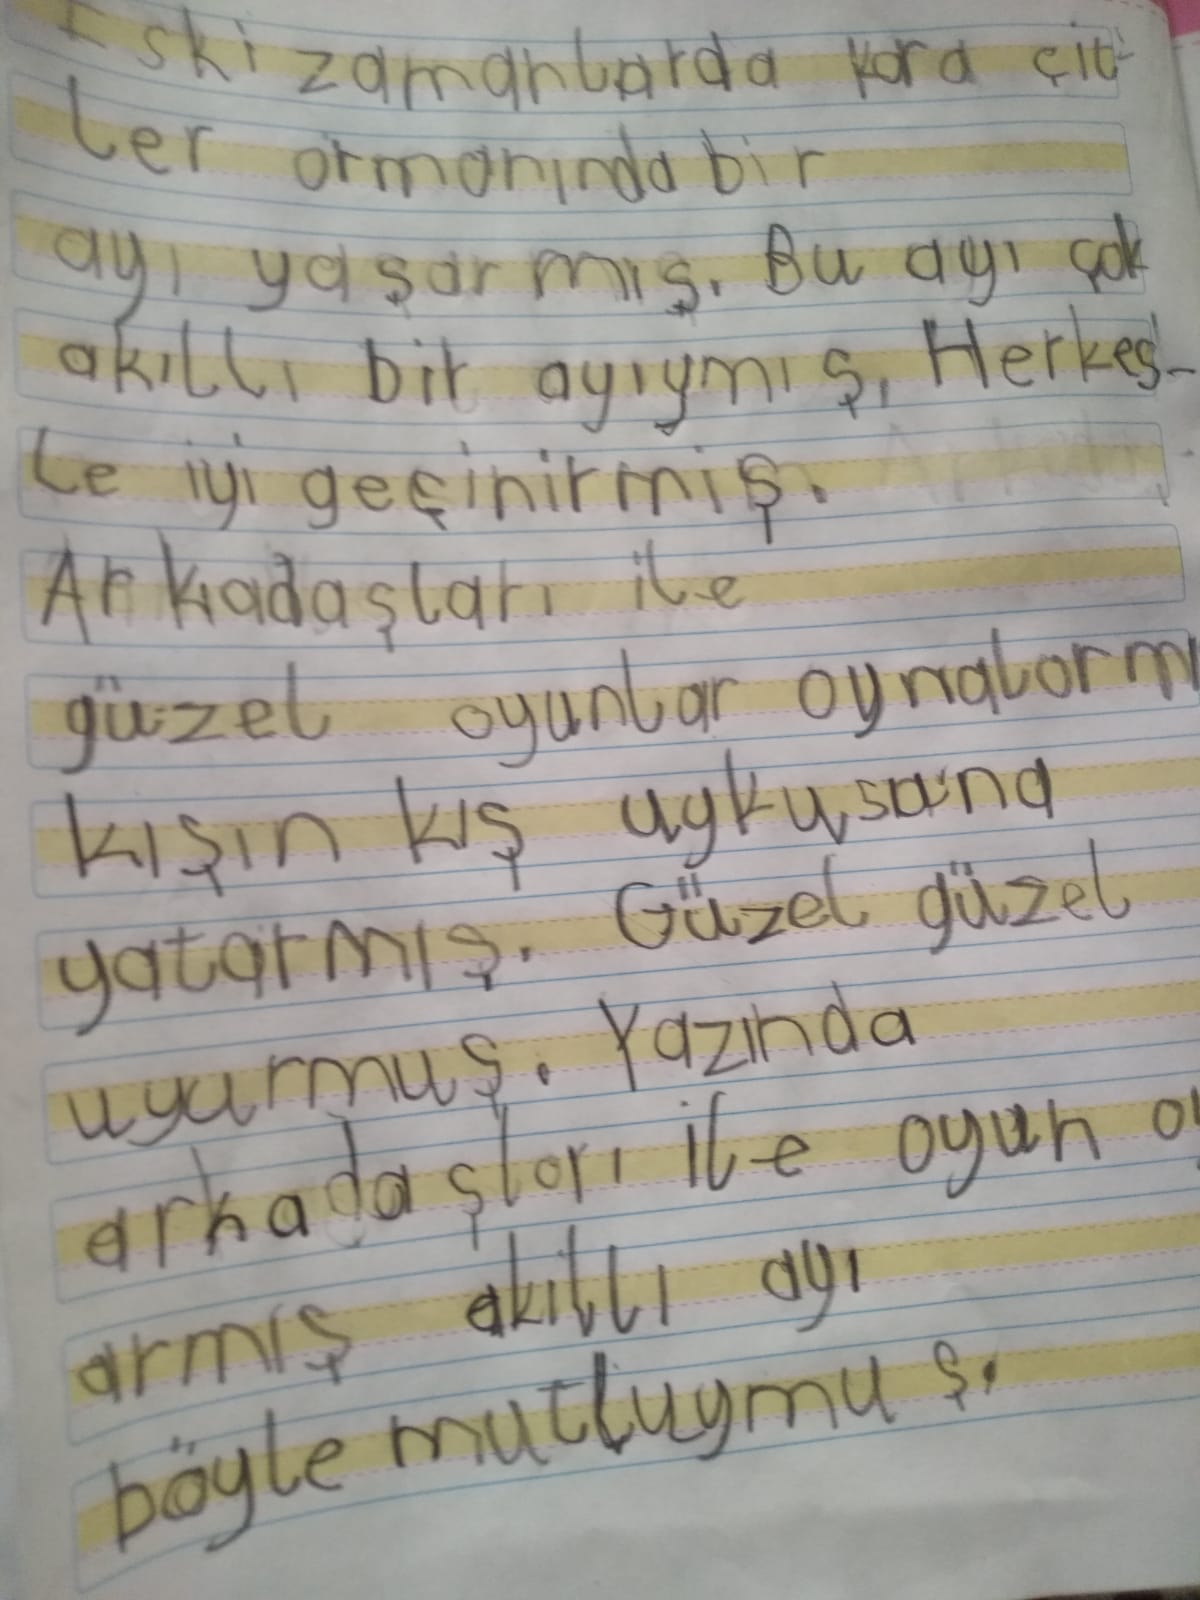 Eski zamanlarda kara çit-
ler ormanında bir
ayı yaşarmış. Bu ayı çok
akıllı bir ayıymış, Herkes-
le iyi geçinirmiş.
Arkadaşları ile
güzel oyunlar oynalarmı
kışın kış uykusuna
yatarmış. Güzel güzel
uyurmuş. Yazında
arkadaşları ile oyun oy
armış akıllı ayı
böyle mutluymuş.